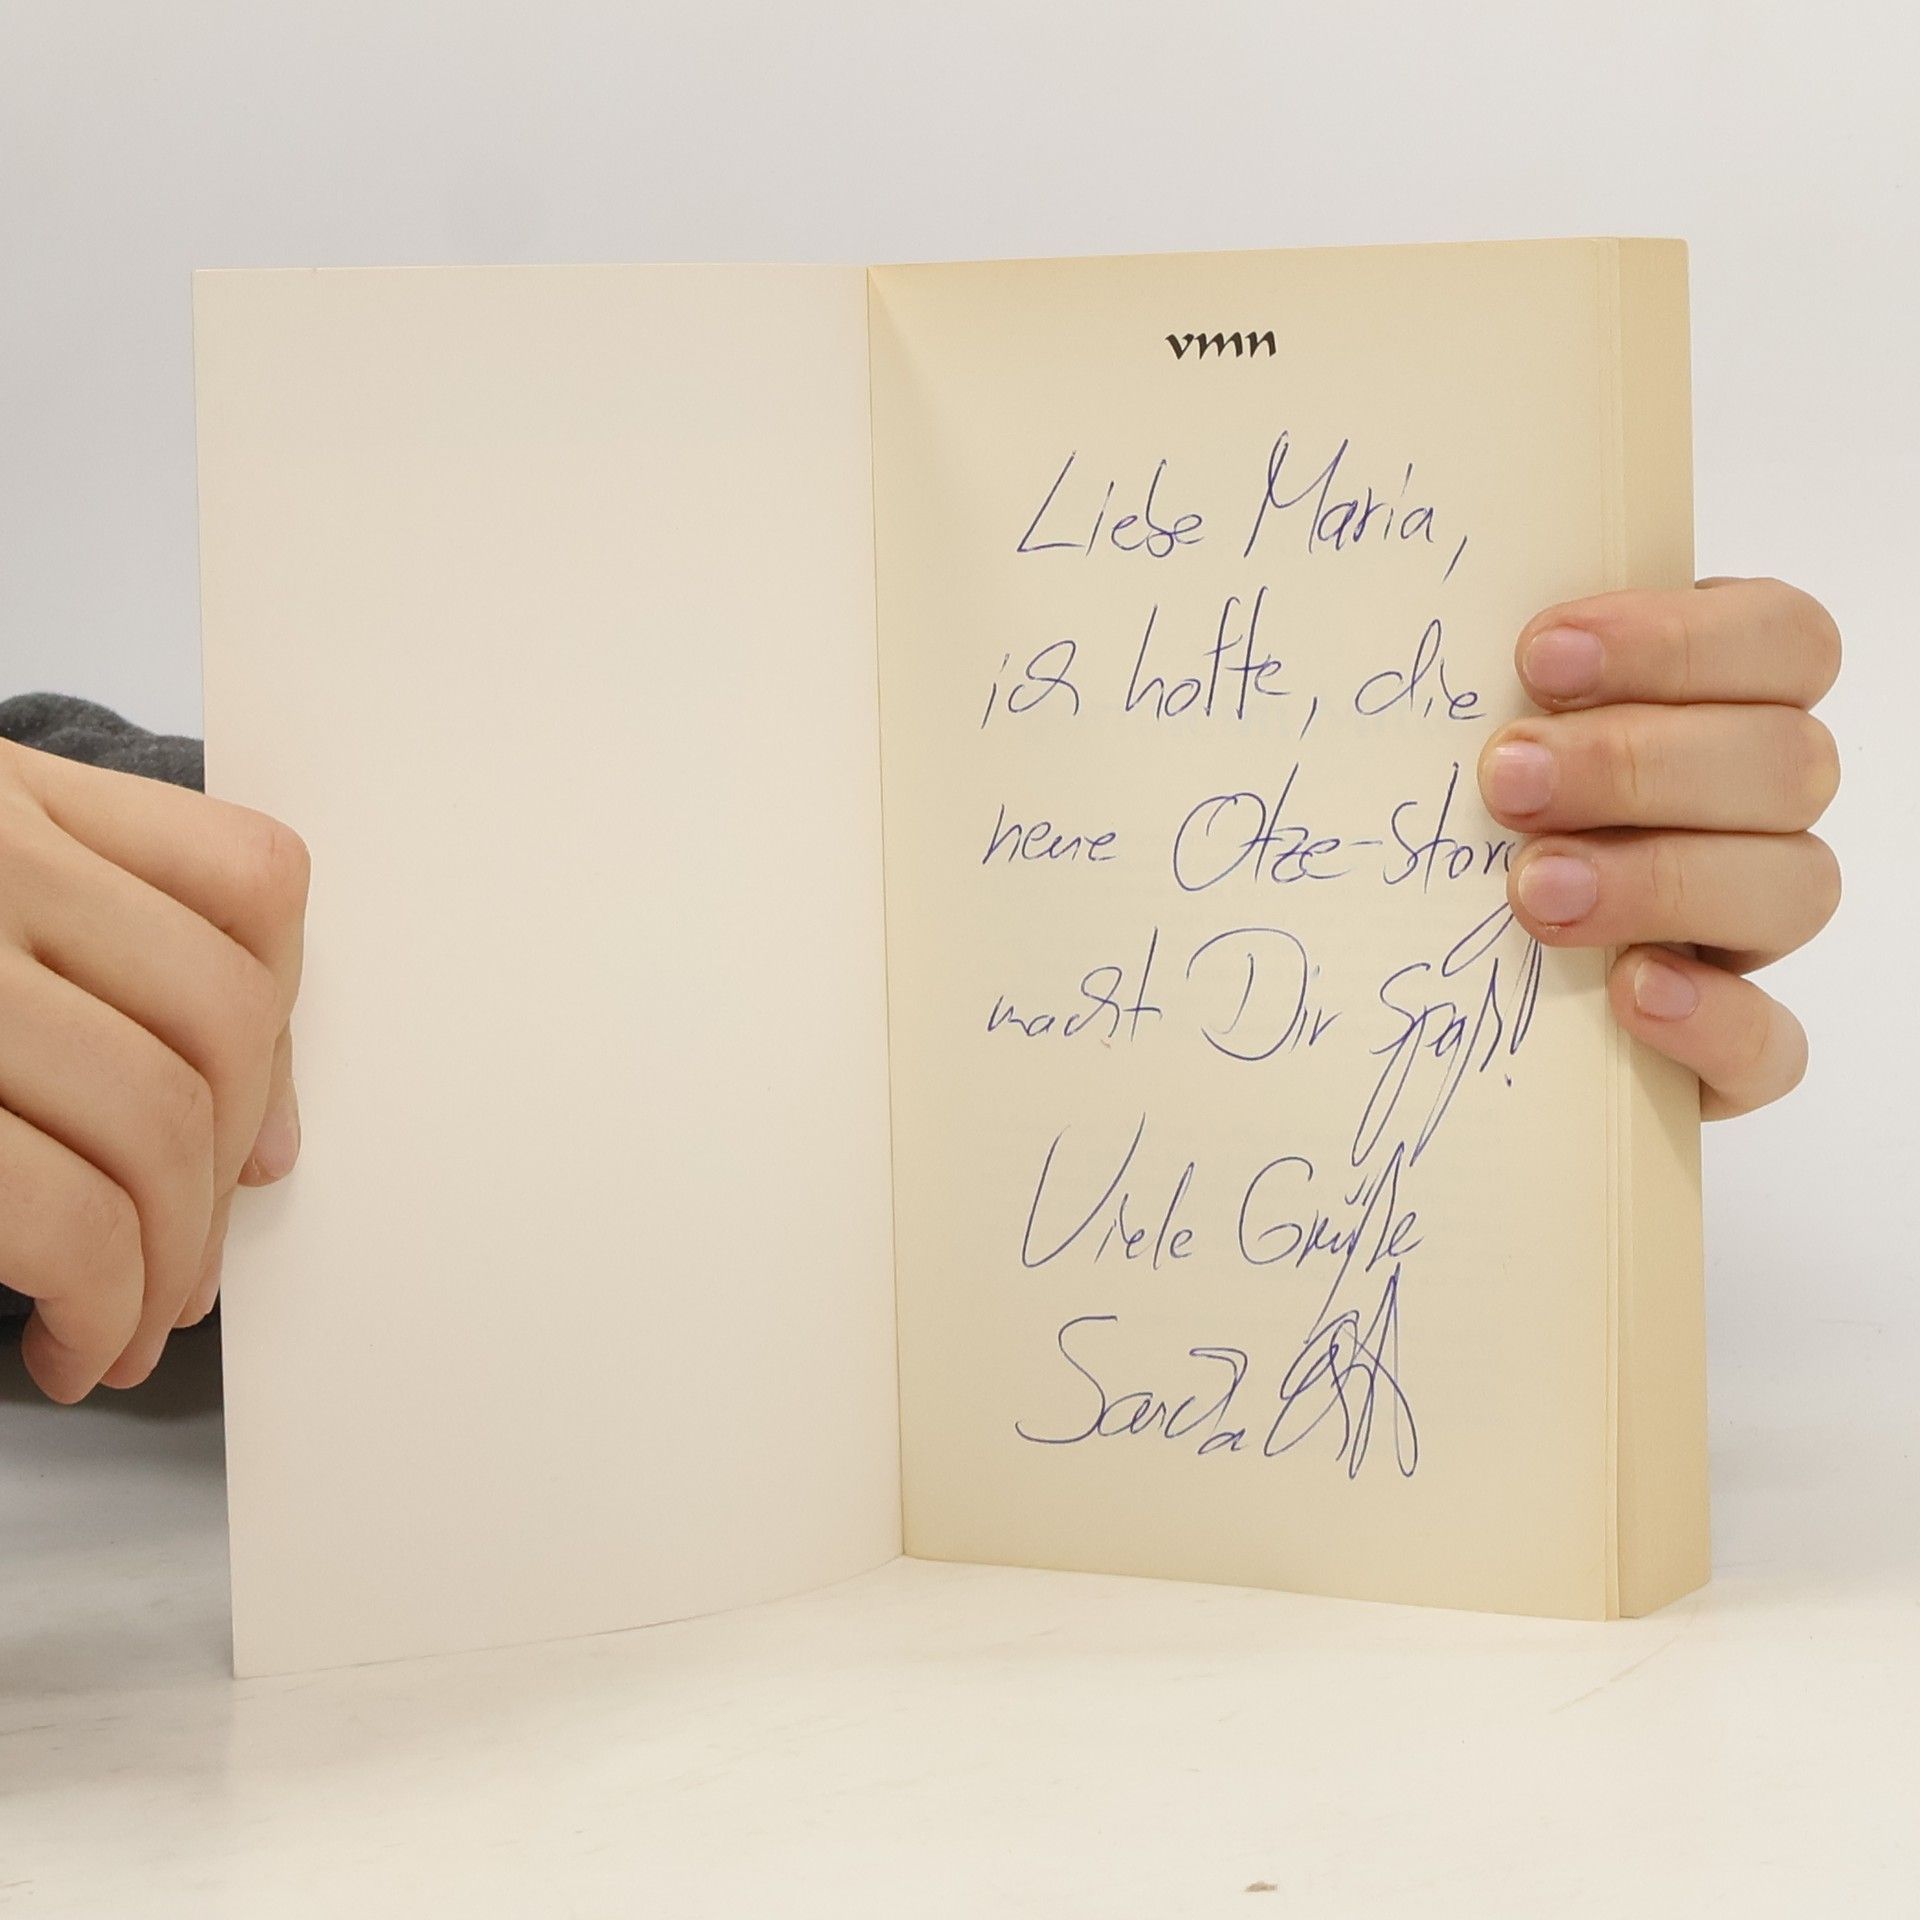 vmn
Liebe Maria,
ich hoffe, die
neue Otze-Story
macht Dir Spaß!
Viele Grüße
Sandra